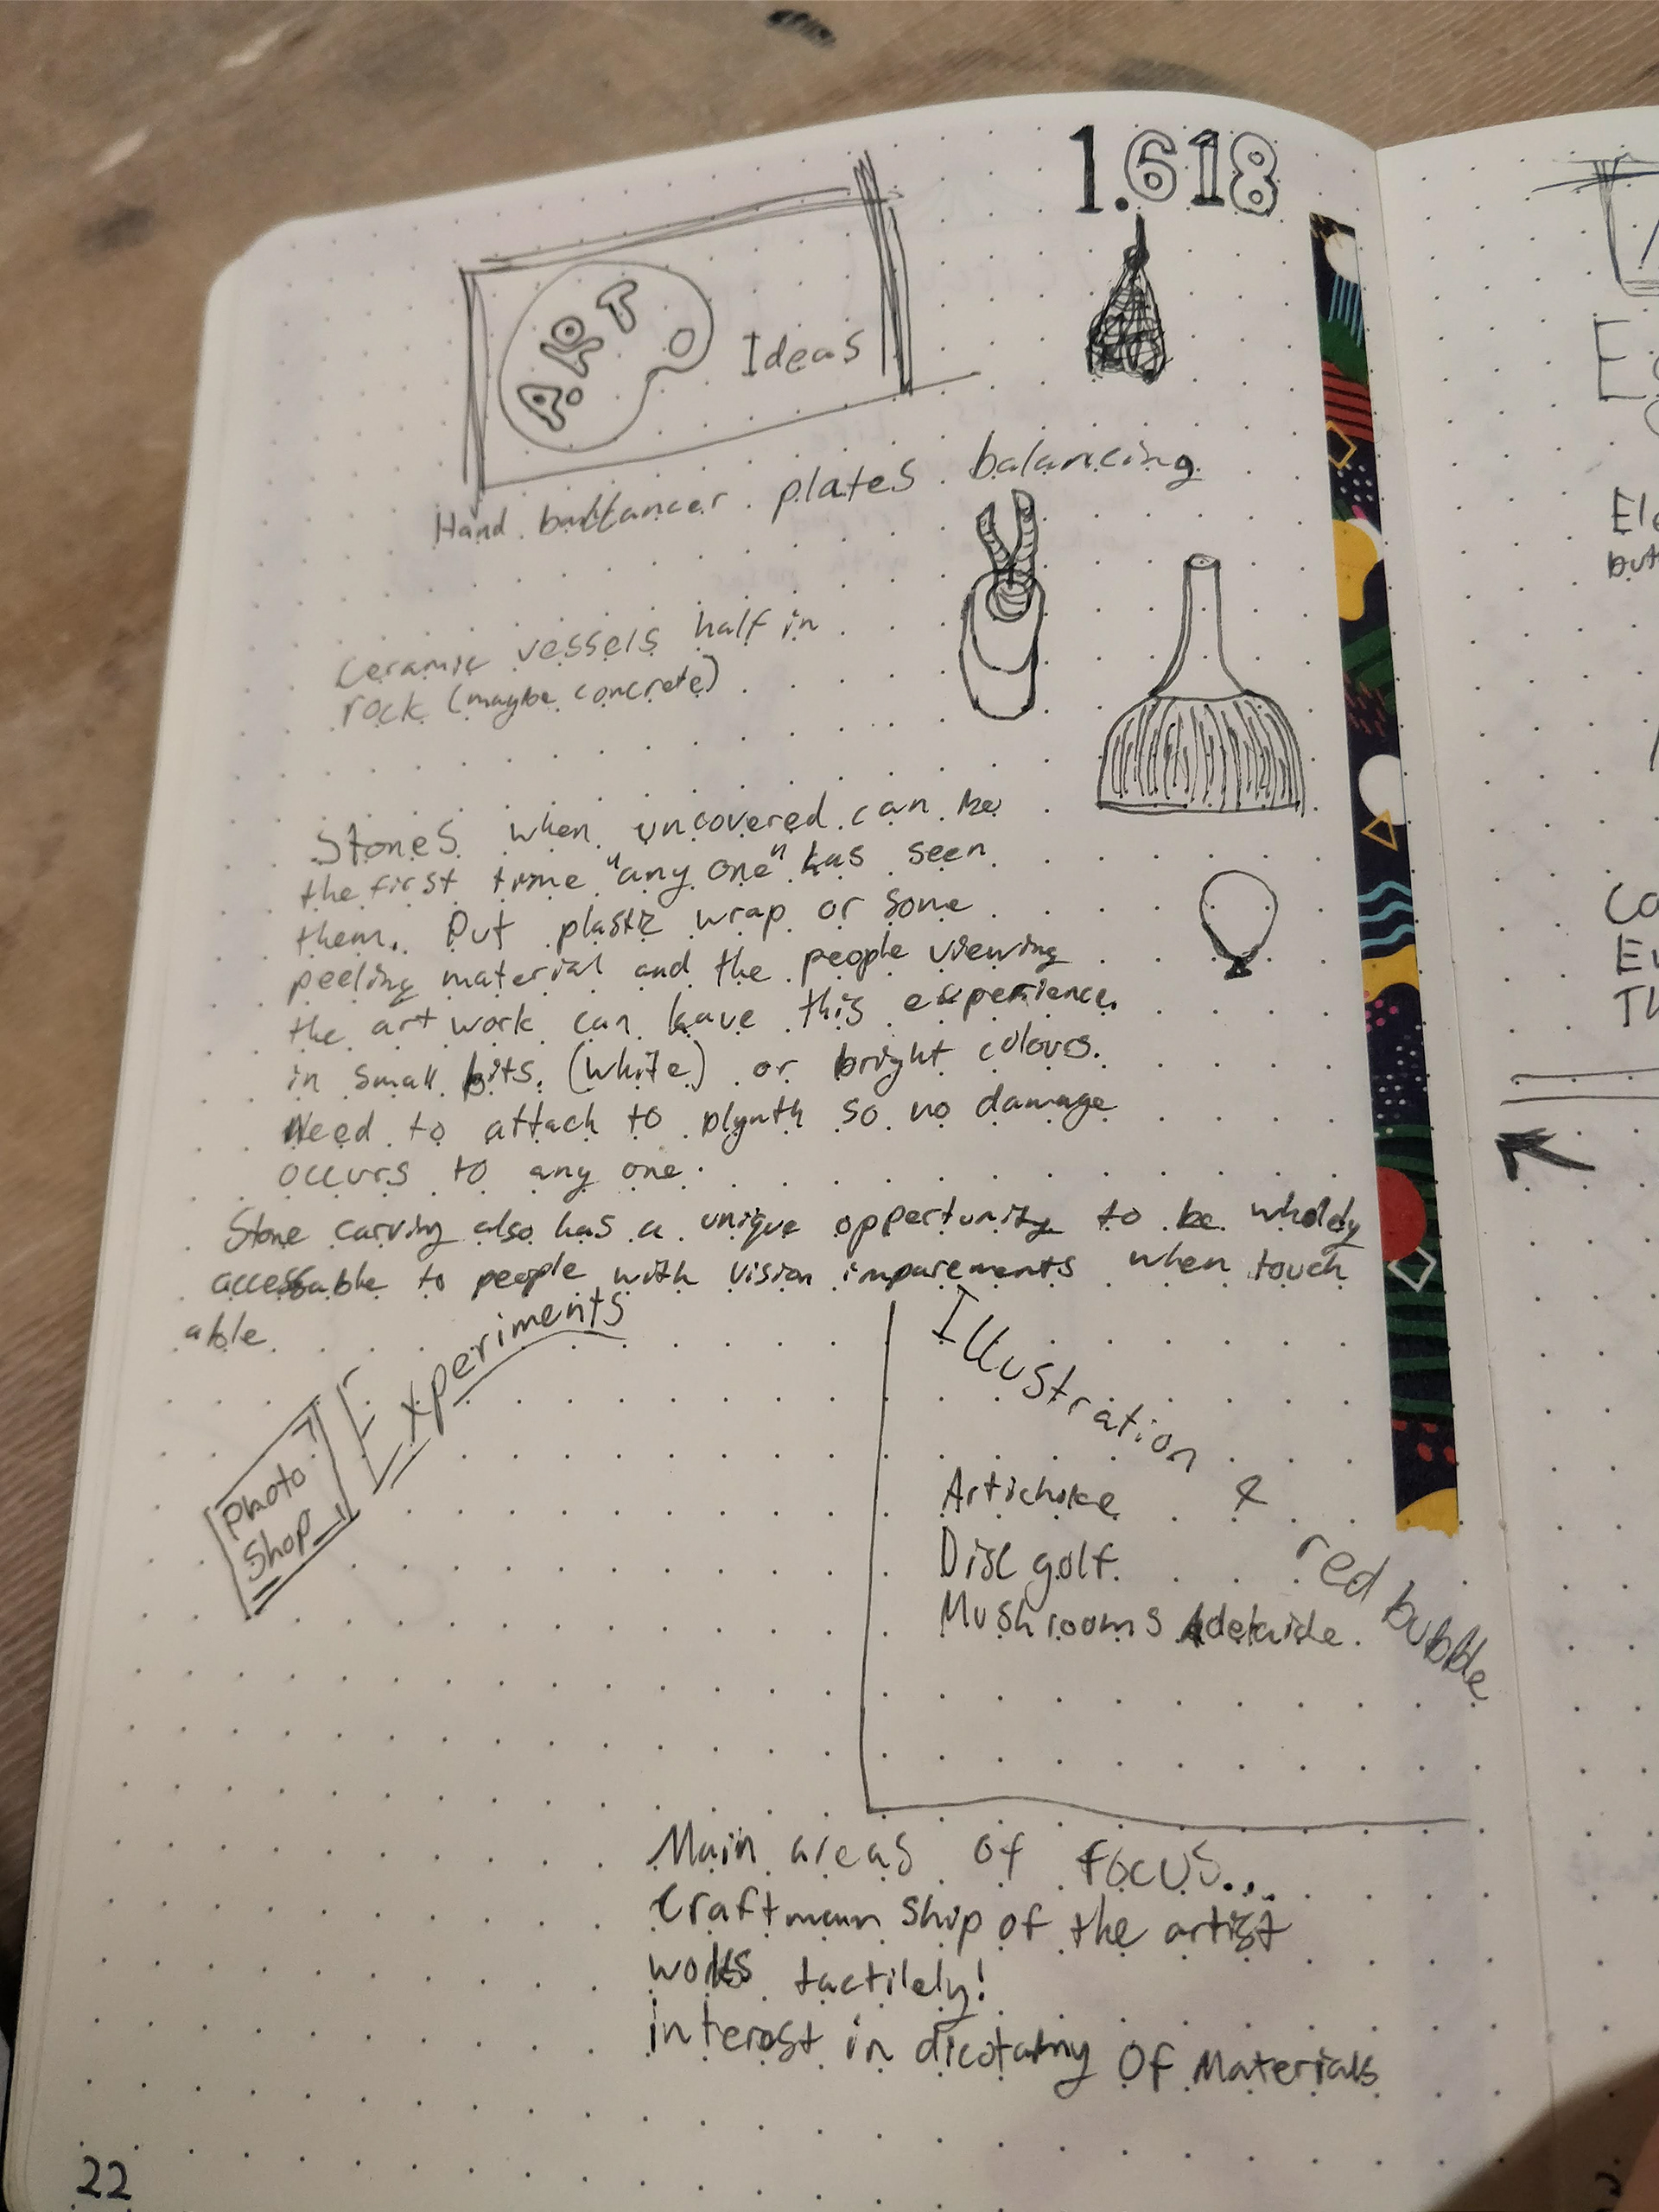 1.618
ART Ideas
Hand ballancer plates balancing
Ceramic vessels half in
rock (maybe concrete)
Stones when uncovered can be
the first time "any one" has seen
them. Put plastic wrap or some
peeling material and the people viewing
the art work can have this experience.
in small bits. (white) or bright colours.
Need to attach to plynth so no damage
occurs to any one.
Stone carving also has a unique oppertunity to be wholdy
accessable to people with vision imparements when touch
able
Photo
Shop
Experiments
Illustration & red bubble
Artichoke
Disc golf
Mushrooms Adelaide.
Main areas of focus...
Craftmanship of the artist
works tactilely!
interest in dicotamy of Materials
22
Ele
but
Co
Th